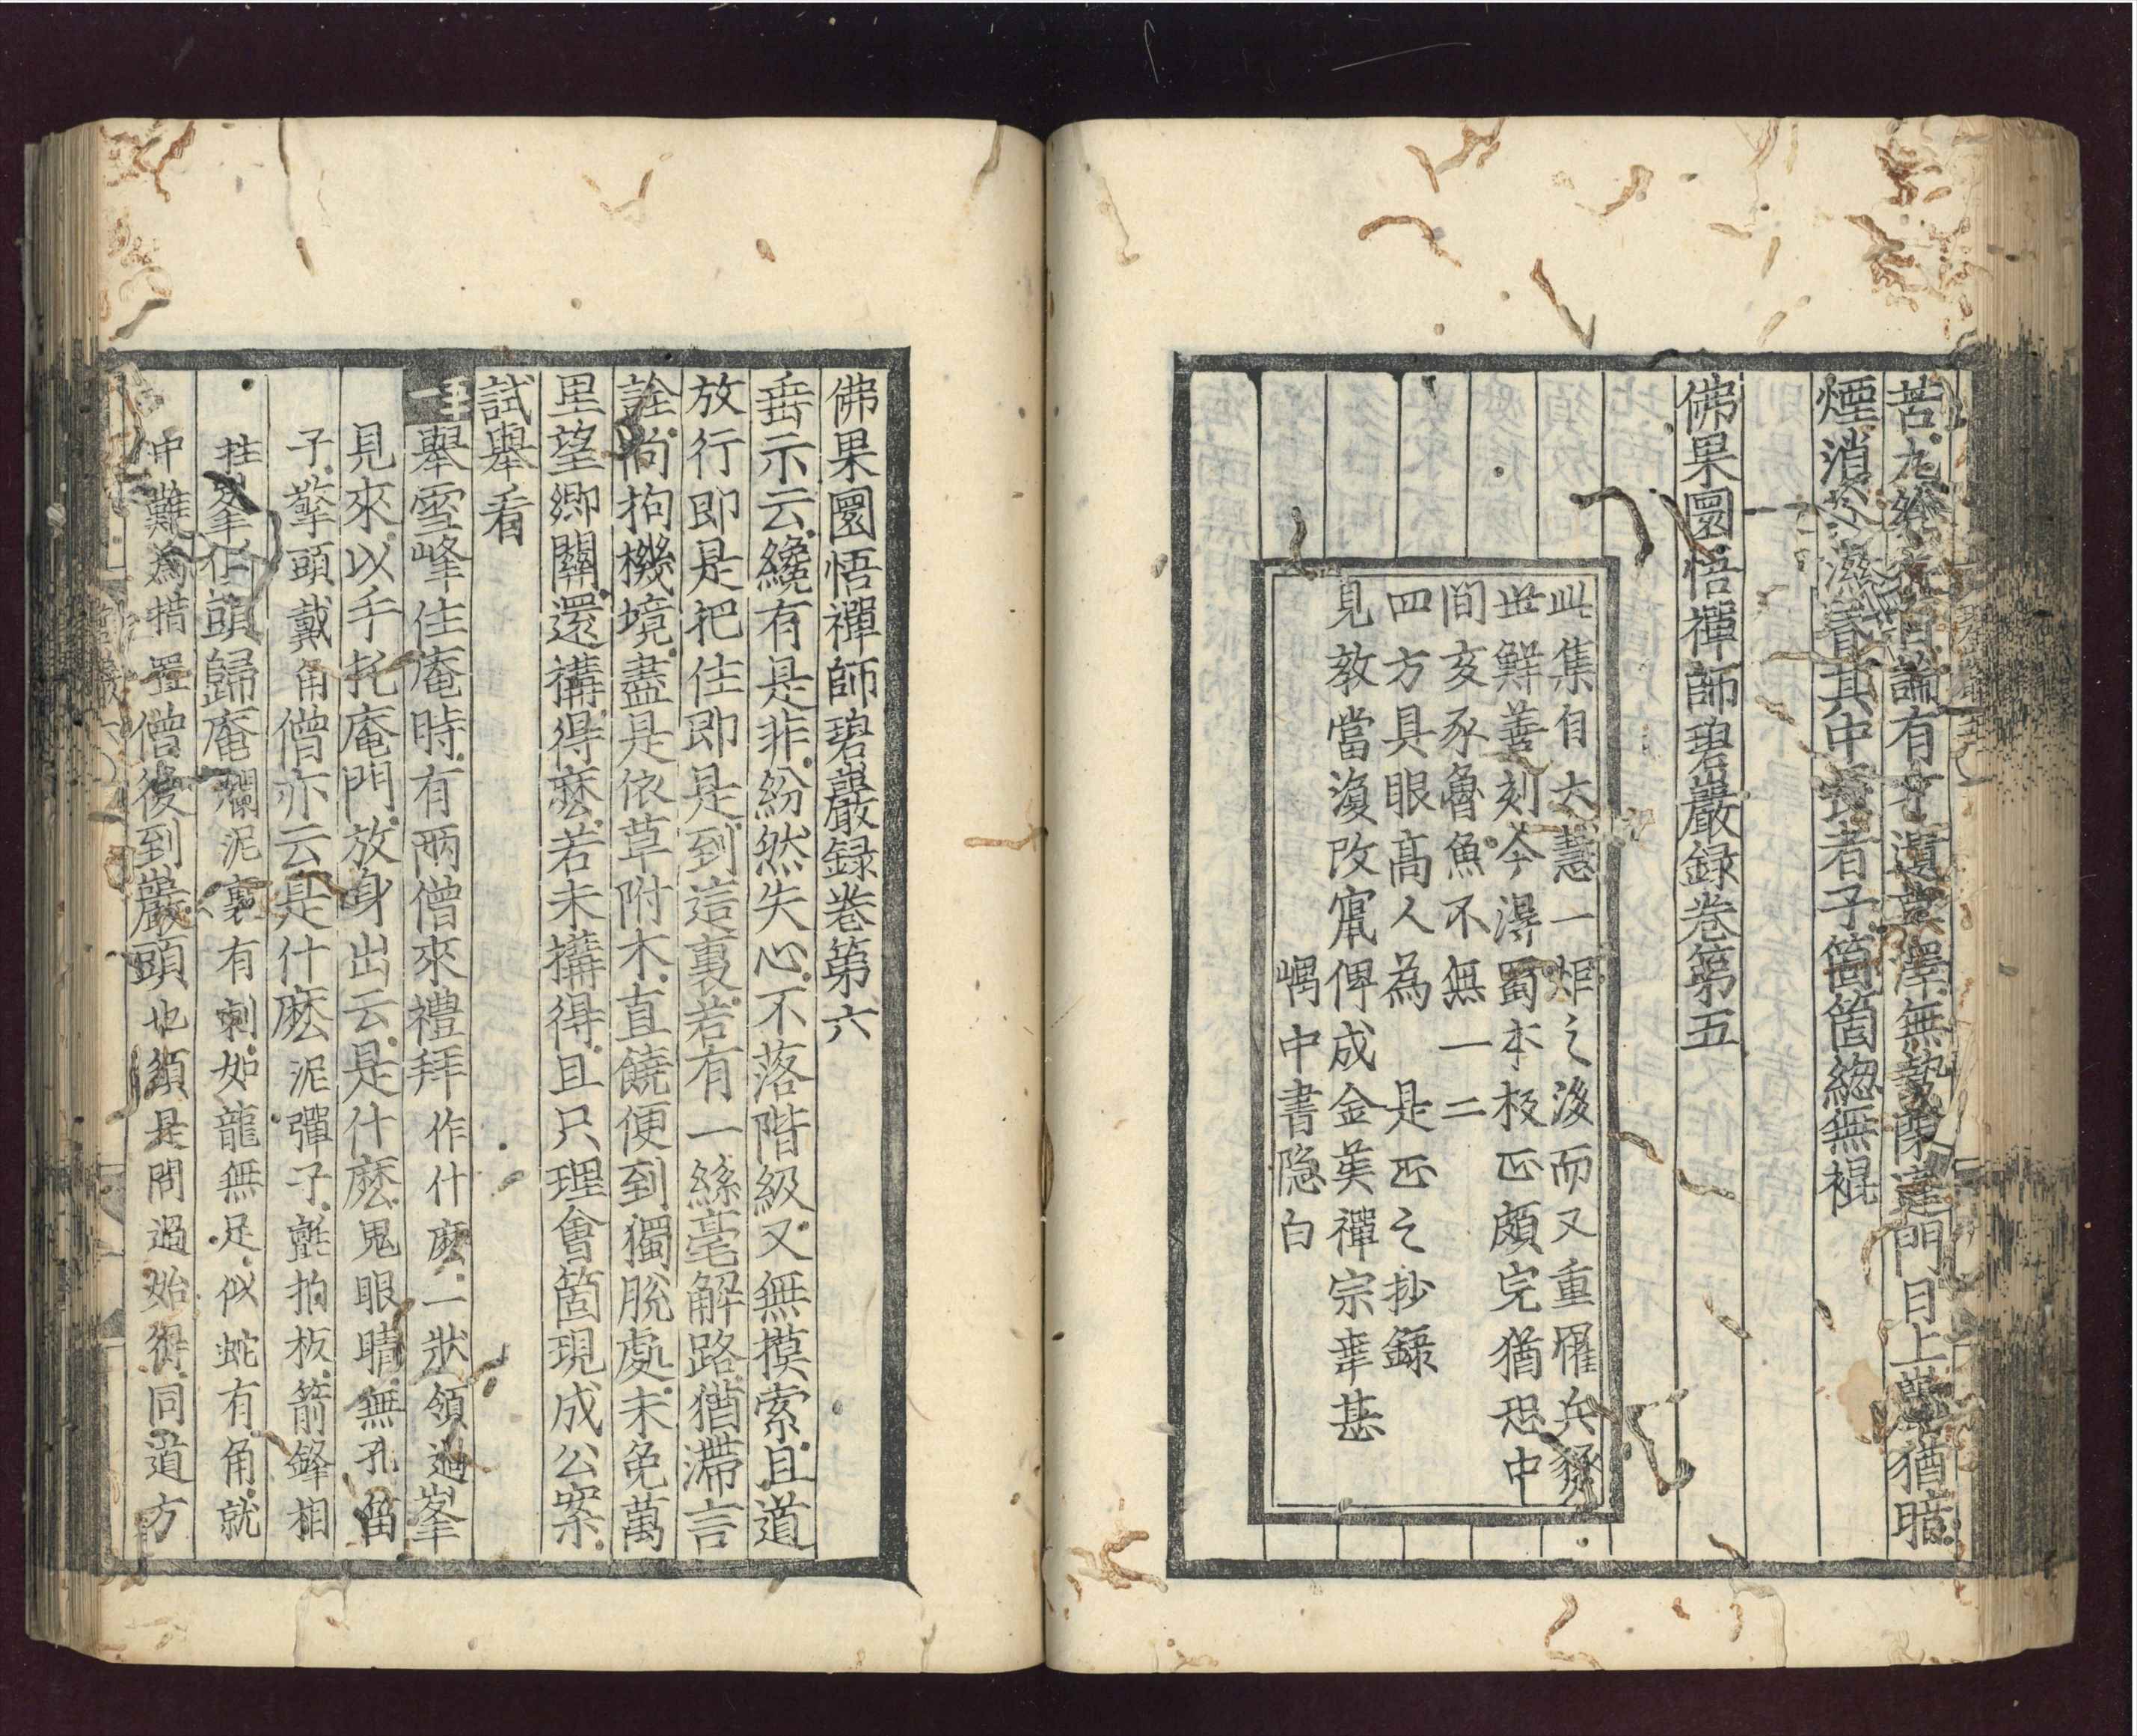 苦九經百論有才濆黃澤無勢隔違門日上薦猶暗
煙消冬濕春其中長者子箇箇緫無裩
佛果圜悟禪師碧巖録卷第五
此集自大慧一炬之後而又重罹兵燹
世鮮善刻今得蜀本板正頗完猶恐中
間亥豕魯魚不無一二
四方具眼髙人為 是正之抄録
見教當復改窠俾成金美禪宗幸甚
嵎中書隐白
佛果圜悟禪師碧巖録卷第六
垂示云纔有是非紛然失心不落階級又無摸索且道
放行即是把住即是到這裏若有一絲毫解路猶滯言
詮尚拘機境盡是依草附木直饒便到獨脫處未免萬
里望鄉關還搆得麽若未搆得且只理會箇現成公案
試舉看
五一舉雪峰住庵時有兩僧來禮拜作什麽一狀領過峯
見來以手托庵門放身出云是什麽鬼眼睛無孔笛
子擎頭戴角僧亦云是什麽泥彈子氈拍板箭鋒相
拄峯低頭歸庵爛泥裏有刺如龍無足似蛇有角就
中難為措置僧後到巖頭也須是問過始得同道方